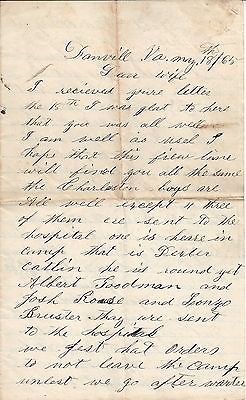 Danvill Va. may 18th/65
Dear Wife
I recieved youre letter
the 15th I was glad to here
that youe was all well
I am well as used I
hope that this few lines
will find you all the same
the Charleston boys are
All well except 4 three
of them ere sent to the
hospital one is heare in
camp that is Perter
catlin he is round yet
Albert Goodman and
Josh Rouse and Lonzo
Bruster Thay are sent
to the hospital
we jest hat orders
to not leave the camp
unlest we go after warter